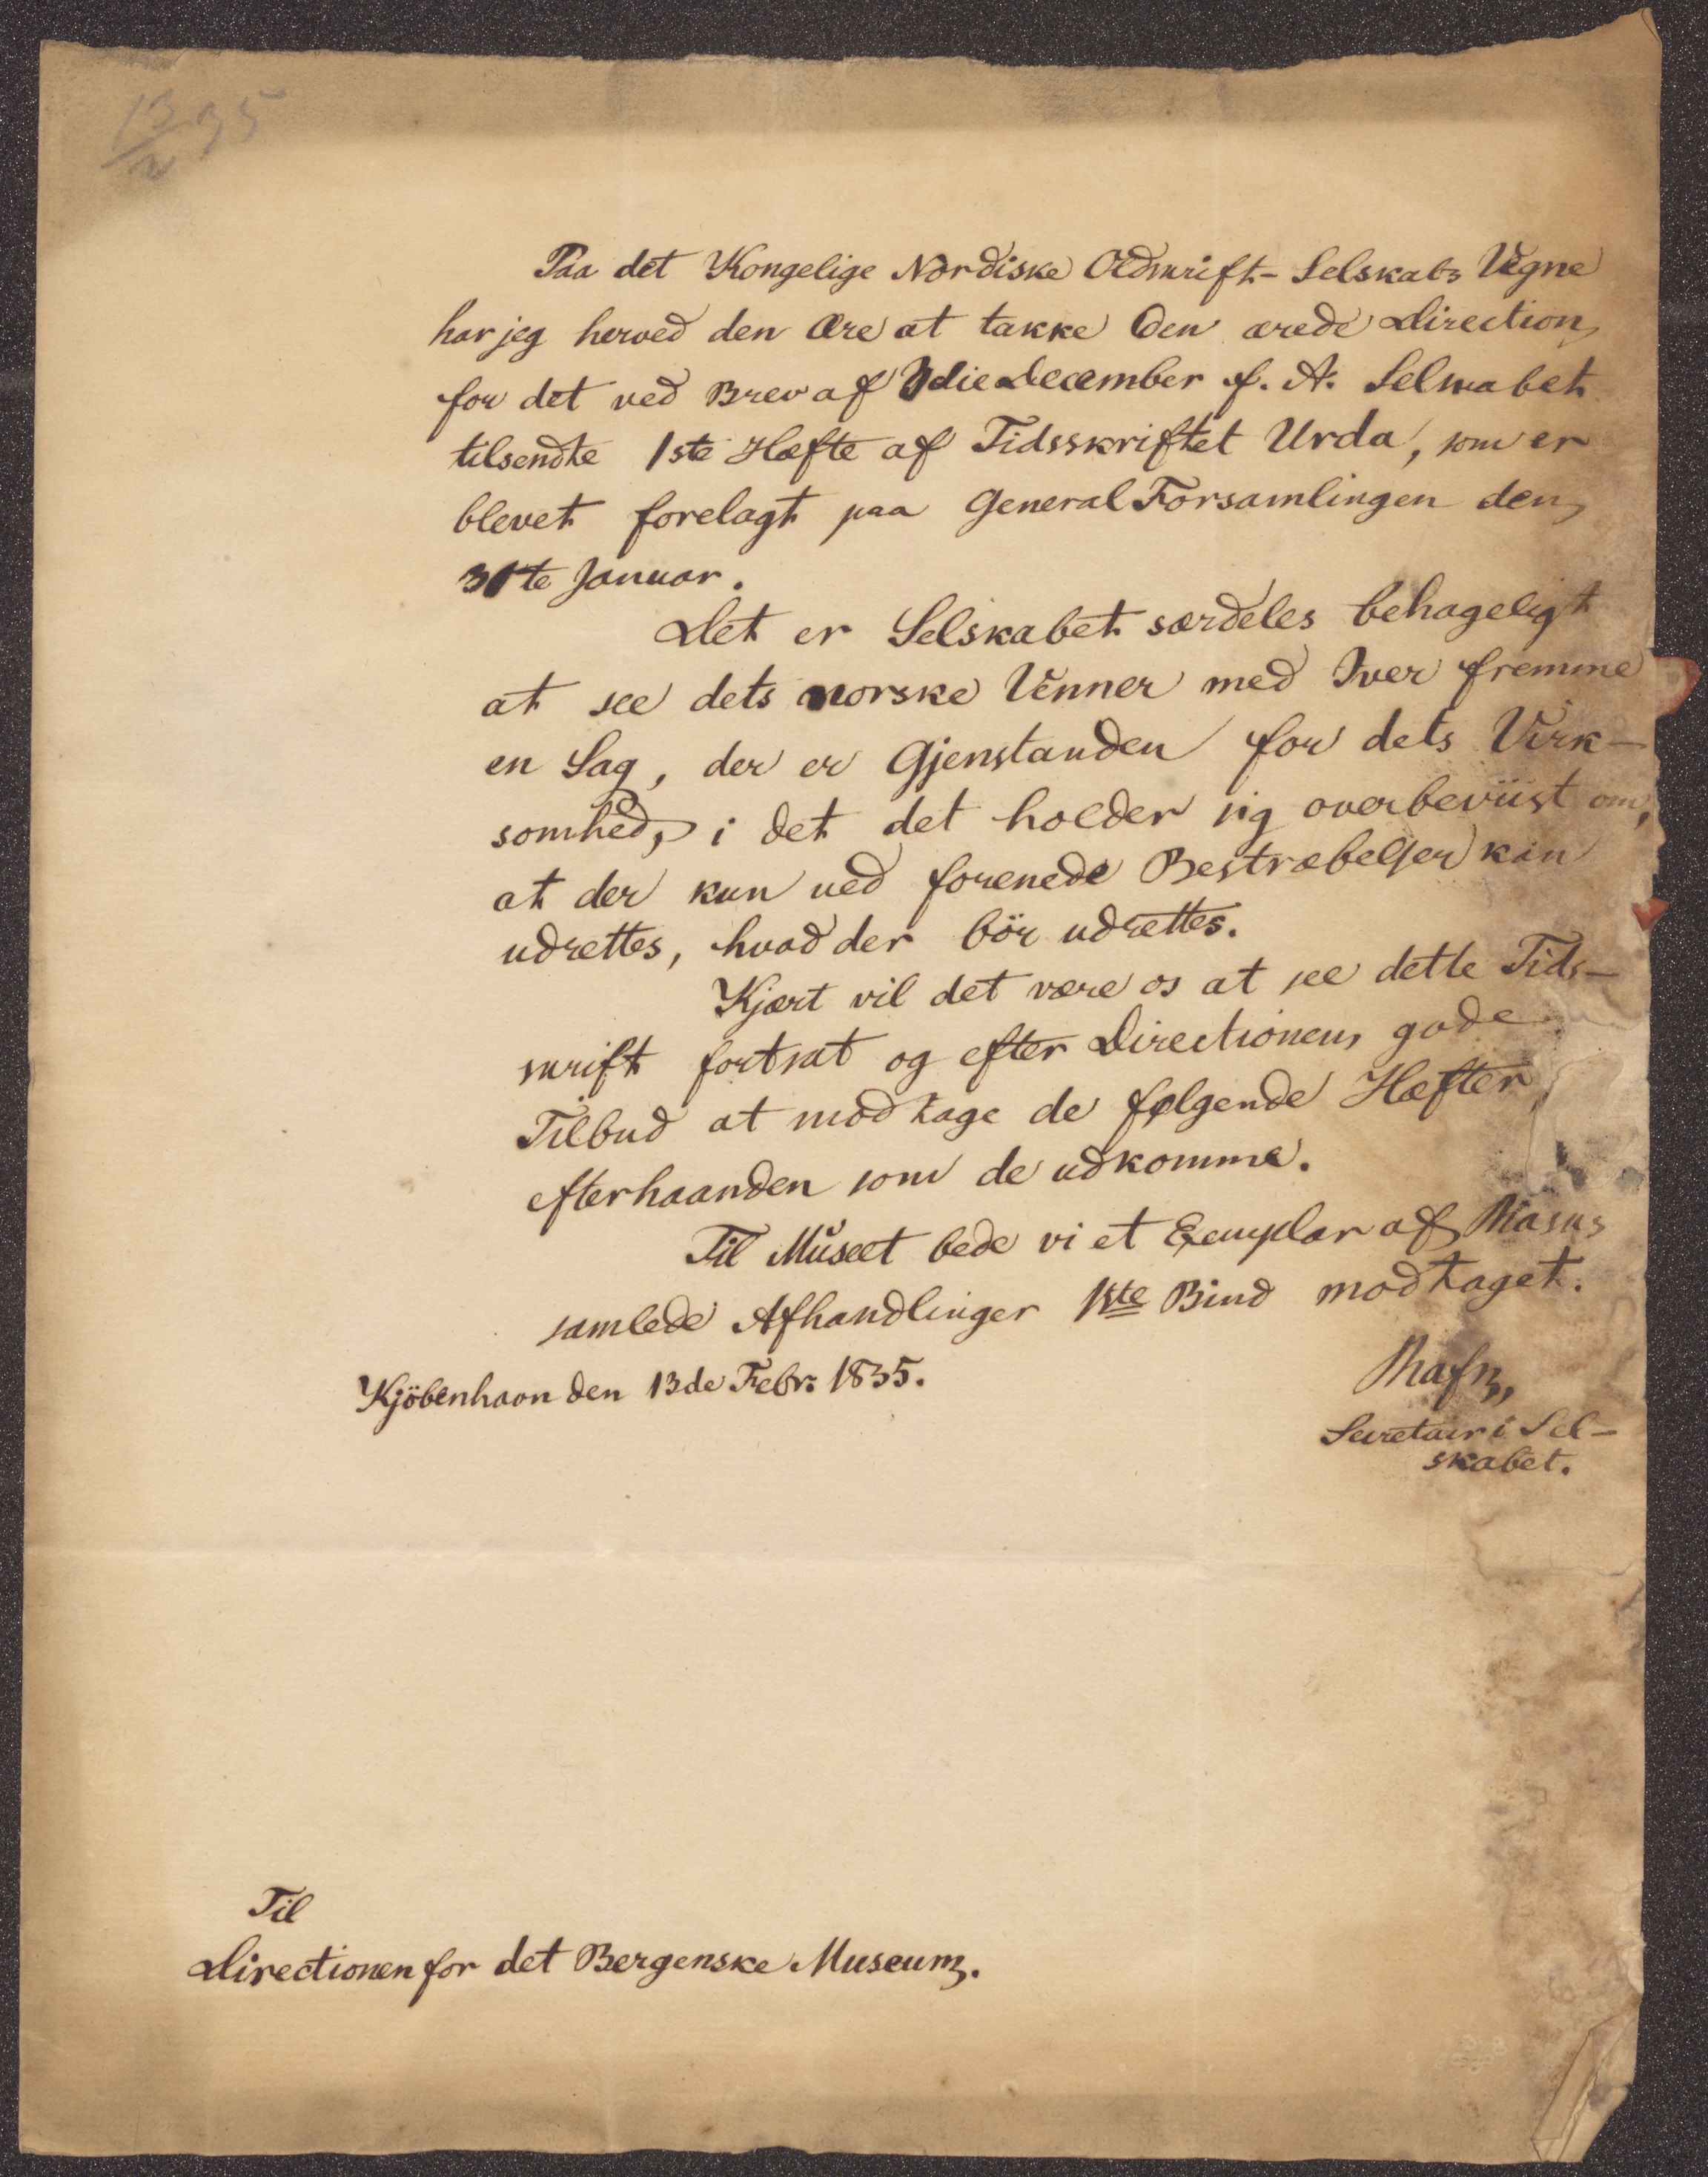 13/2 35
Paa det Kongelige Nordiske Oldskrift-Selskabs Vegne
har jeg herved den Ære at takke den ærede Direction
for det ved Brev af December f. A. Selskabet
tilsendte 1ste Hæfte af Tidsskriftet Urda, som er
blevet forelagt paa General Forsamlingen den
31te Januar.
Det er Selskabet særdeles behageligt
at see dets norske Venner med Iver fremme
en Sag, der er Gjenstanden for dets Virk-
somhed, i det det holder sig overbeviist om,
at der kun ved forenede Bestræbelser kan
udrettes, hvad der bör udrettes.
Kjært vil det være os at see dette Tids-
skrift fortsat og efter Directionens gode
Tilbud at modtage de følgende Hæfter
efterhaanden som de udkomme.
Til Museet bede vi et Exemplar af Rasks
samlede Afhandlinger 1ste Bind modtaget.
Kjöbenhavn den 13de Febr. 1835.
Rafn,
Secretair i Sel-
skabet.
Til
Directionen for det Bergenske Museum.